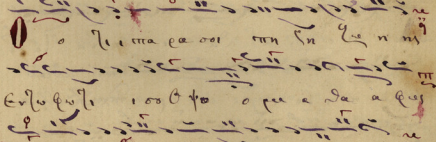 Ο ο τι ι πα ρα σοι πη γη ζω η ης
εν τω φω τι ι σου ο ψο ο με ε θα α φως